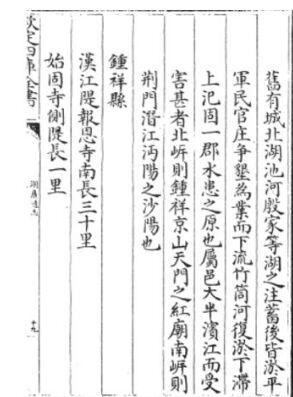 舊有城北湖池河殷家等湖之注蓄後皆淤平
軍民官庄争墾為業而下流竹筒河復淤下滯
上汜固一郡水患之原也屬邑大半濱江而受
害甚者北岍則鍾祥京山天門之紅廟南岍則
荆門潛江沔陽之沙陽也
鍾祥縣
漢江隄報恩寺南長三十里
始固寺側隄長一里
欽定四庫全書
湖廣通志
十九